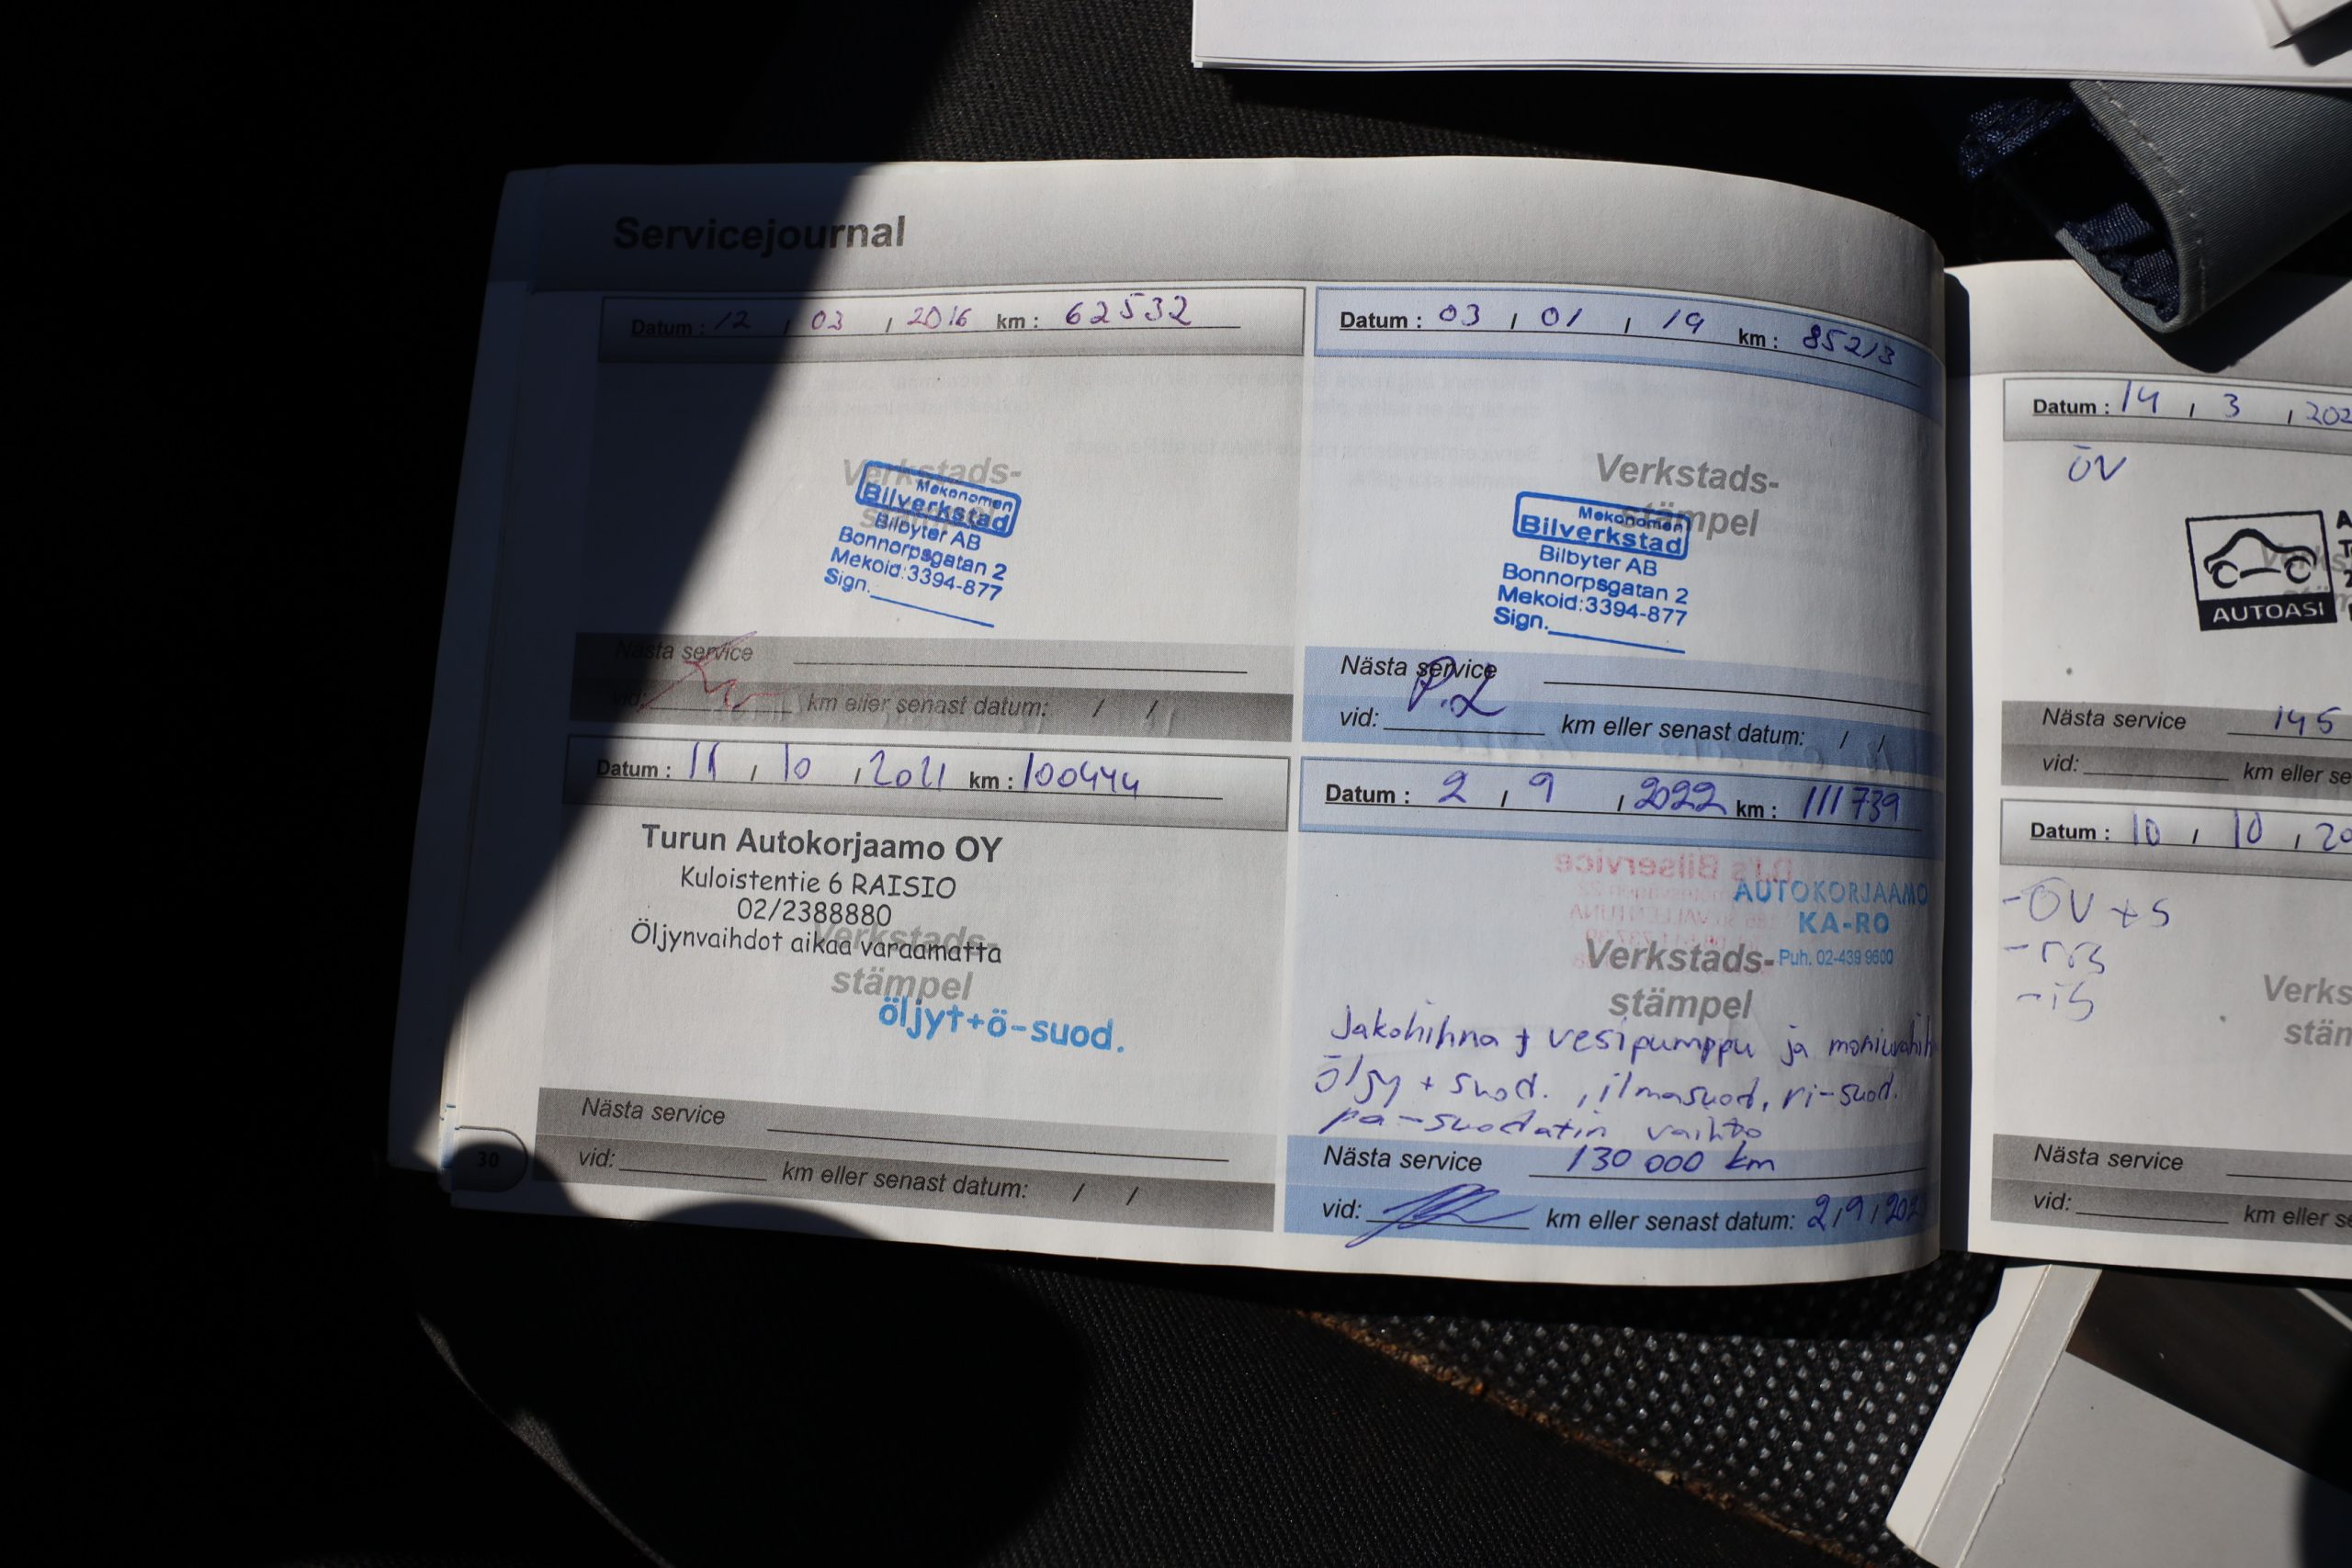 Servicejournal
Datum : 12 / 03 / 2016 km : 62532
Verkstads-
stämpel
Mekonomen
Bilverkstad
Bilbyter AB
Bonnorpsgatan 2
Mekoid:3394-877
Sign.
Nästa service
vid: km eller senast datum: / /
Datum : 03 / 01 / 19 km : 85213
Verkstads-
stämpel
Mekonomen
Bilverkstad
Bilbyter AB
Bonnorpsgatan 2
Mekoid:3394-877
Sign.
Nästa service
P.L
vid: km eller senast datum: / /
Datum : 11 / 10 / 2021 km : 100444
Turun Autokorjaamo OY
Kuloistentie 6 RAISIO
02/2388880
Öljynvaihdot aikaa varaamatta
Verkstads-
stämpel
öljyt+ö-suod.
Nästa service
vid: km eller senast datum: / /
30
Datum : 2 / 9 / 2022 km : 111739
AUTOKORJAAMO
KA-RO
Puh. 02-439 9600
Verkstads-
stämpel
Jakohihna + vesipumppu ja
öljy + suod. , ilmasuod, ri-suod.
pa-suodatin vaihto
Nästa service 130 000 km
vid: km eller senast datum: 2 / 9 / 202
Datum : 14 / 3 / 202
ÖV
AUTOASI
Nästa service 145
vid: km eller se
Datum : 10 / 10 / 20
-ÖV +S
-rrs
-is
Verks
stän
Nästa service
vid: km eller se